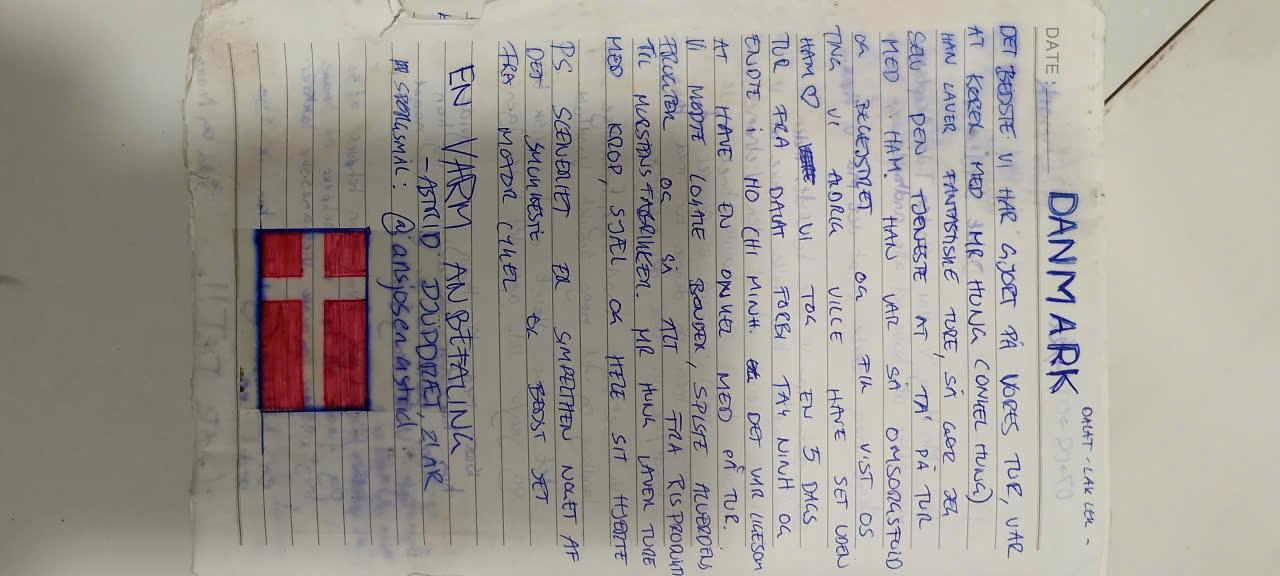 DALAT - LAK LAK -
DATE:
DANMARK
DET BEDSTE VI HAR GJORT PÅ VORES TUR, VAR
AT KØRER MED MR HUNG (ONKEL HUNG)
HAN LAVER FANTASTISKE TURE, SÅ GØR JER
SELV DEN TJENESTE AT TA' PÅ TUR
MED HAM. HAN VAR SÅ OMSORGSFULD
OG BEGEJSTRET OG FIK VIST OS
TING VI ALDRIG VILLE HAVE SET UDEN
HAM ♡ VI TOG EN 5 DAGS
TUR FRA DALAT FORBI TAY NINH OG
ENDTE I HO CHI MINH. DET VAR LIGESOM
AT HAVE EN ONKEL MED PÅ TUR.
VI MØDTE LOKALE BØNDER, SPISTE ALVERDENS
FRUGTER OG SÅ ALT FRA RISPRODUKT
TIL MURSTENSFABRIKKER. MR HUNG LAVER TURE
MED KROP, SJÆL OG HELE SIT HJERTE
PS SCENERIET ER SIMPELTHEN NOGET AF
DET SMUKKESTE OG BEDST SET
FRA MOTORCYKEL
EN VARM ANBEFALING
- ASTRID DUPONT, 21 ÅR
SPØRGSMÅL: @ansjosen astrid